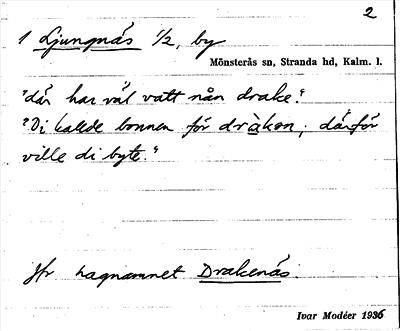 2
1 Ljungnäs 1/2, by
Mönsterås sn, Stranda hd, Kalm. l.
"där har väl vatt nån drake."
"Di kallde bonnen för dràkan, därför
ville di byte."
Jfr hagnamnet Drakenäs.
Ivar Modéer 1936